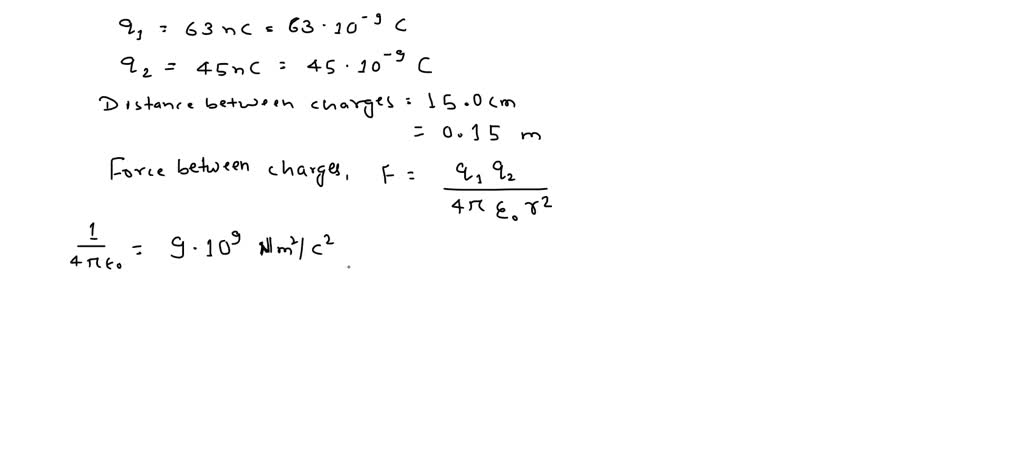 q₁ = 63 nC = 63 · 10⁻⁹ C
q₂ = 45nC = 45 · 10⁻⁹ C
Distance between charges = 15.0 cm
= 0.15 m
Force between charges, F = q₁ q₂ / 4π ε₀ r²
1 / 4πε₀ = 9 · 10⁹ Nm²/c²